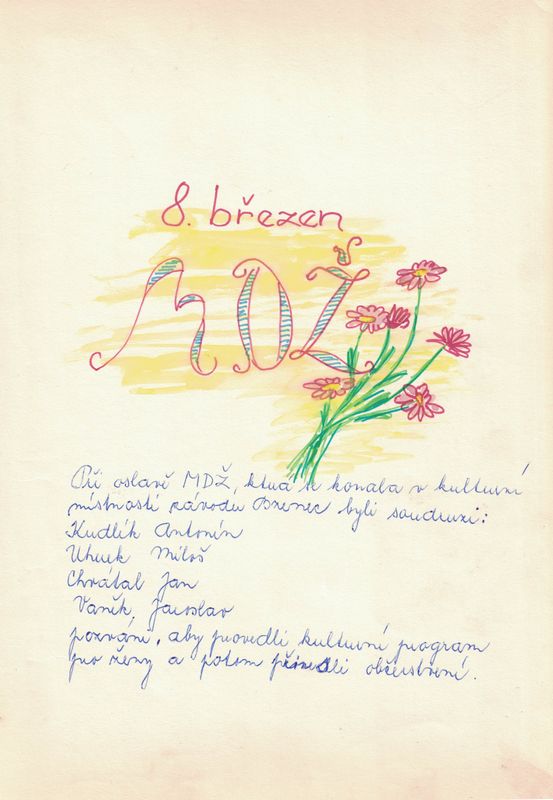 8. březen
MDŽ
Při oslavě MDŽ, která se konala v kulturní
místnosti závodu Brněnec byli soudruzi:
Kudlík Antonín
Miloš
Chvátal Jan
Vaněk Jaroslav
pozváni, aby provedli kulturní program
pro ženy a potom přinesli občerstvení.